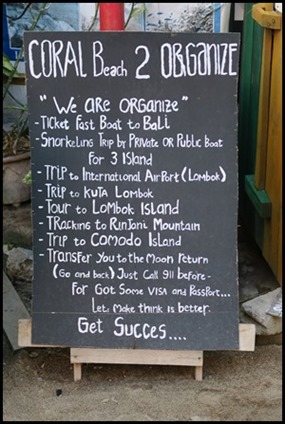 CORAL Beach 2 ORGANIZE
"We are organize"
- Ticket Fast Boat to Bali
- Snorkeling Trip by Private or Public Boat
For 3 Island
- Trip to International AirPort (Lombok)
- Trip to Kuta Lombok
- Tour to Lombok Island
- TRacking to Rinjani Mountain
- Trip to Comodo Island
- Transfer You to the Moon return
(Go and back) Just Call 911 before-
For Got Some Visa and Passport...
Let. Make think is better.
Get Succes....